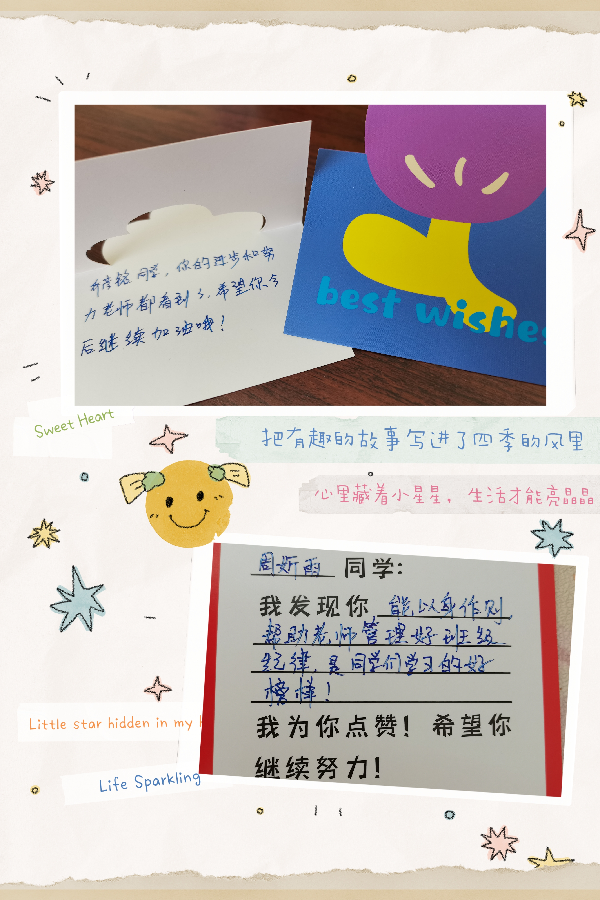 同学,你的进步和努
力老师都看到了,希望你今
后继续加油哦!
best wishes
Sweet Heart
把有趣的故事写进了四季的风里
心里藏着小星星,生活才能亮晶晶
周昕雨 同学:
我发现你 能以身作则,
帮助老师管理好班级
纪律,是同学们学习的好
榜样!
我为你点赞!希望你
继续努力!
Little star hidden in my
Life Sparkling